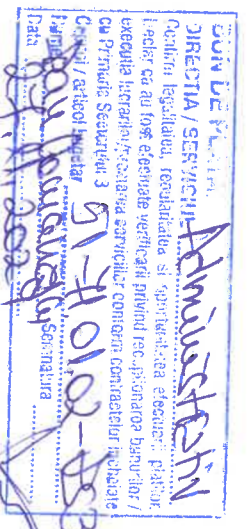 BUN DE PLATA
DIRECTIA / SERVICIUL Administrativ
Confirm legalitatea, regularitatea si oportunitatea efectuarii platilor,
ca au fost efectuate verificari privind receptionarea bunurilor /
executia lucrarilor/prestarea serviciilor conform contractelor incheiate
cu Primaria Sectorului 3
Capitol / articol bugetar 51-71.01.02-
Semnatura
Data